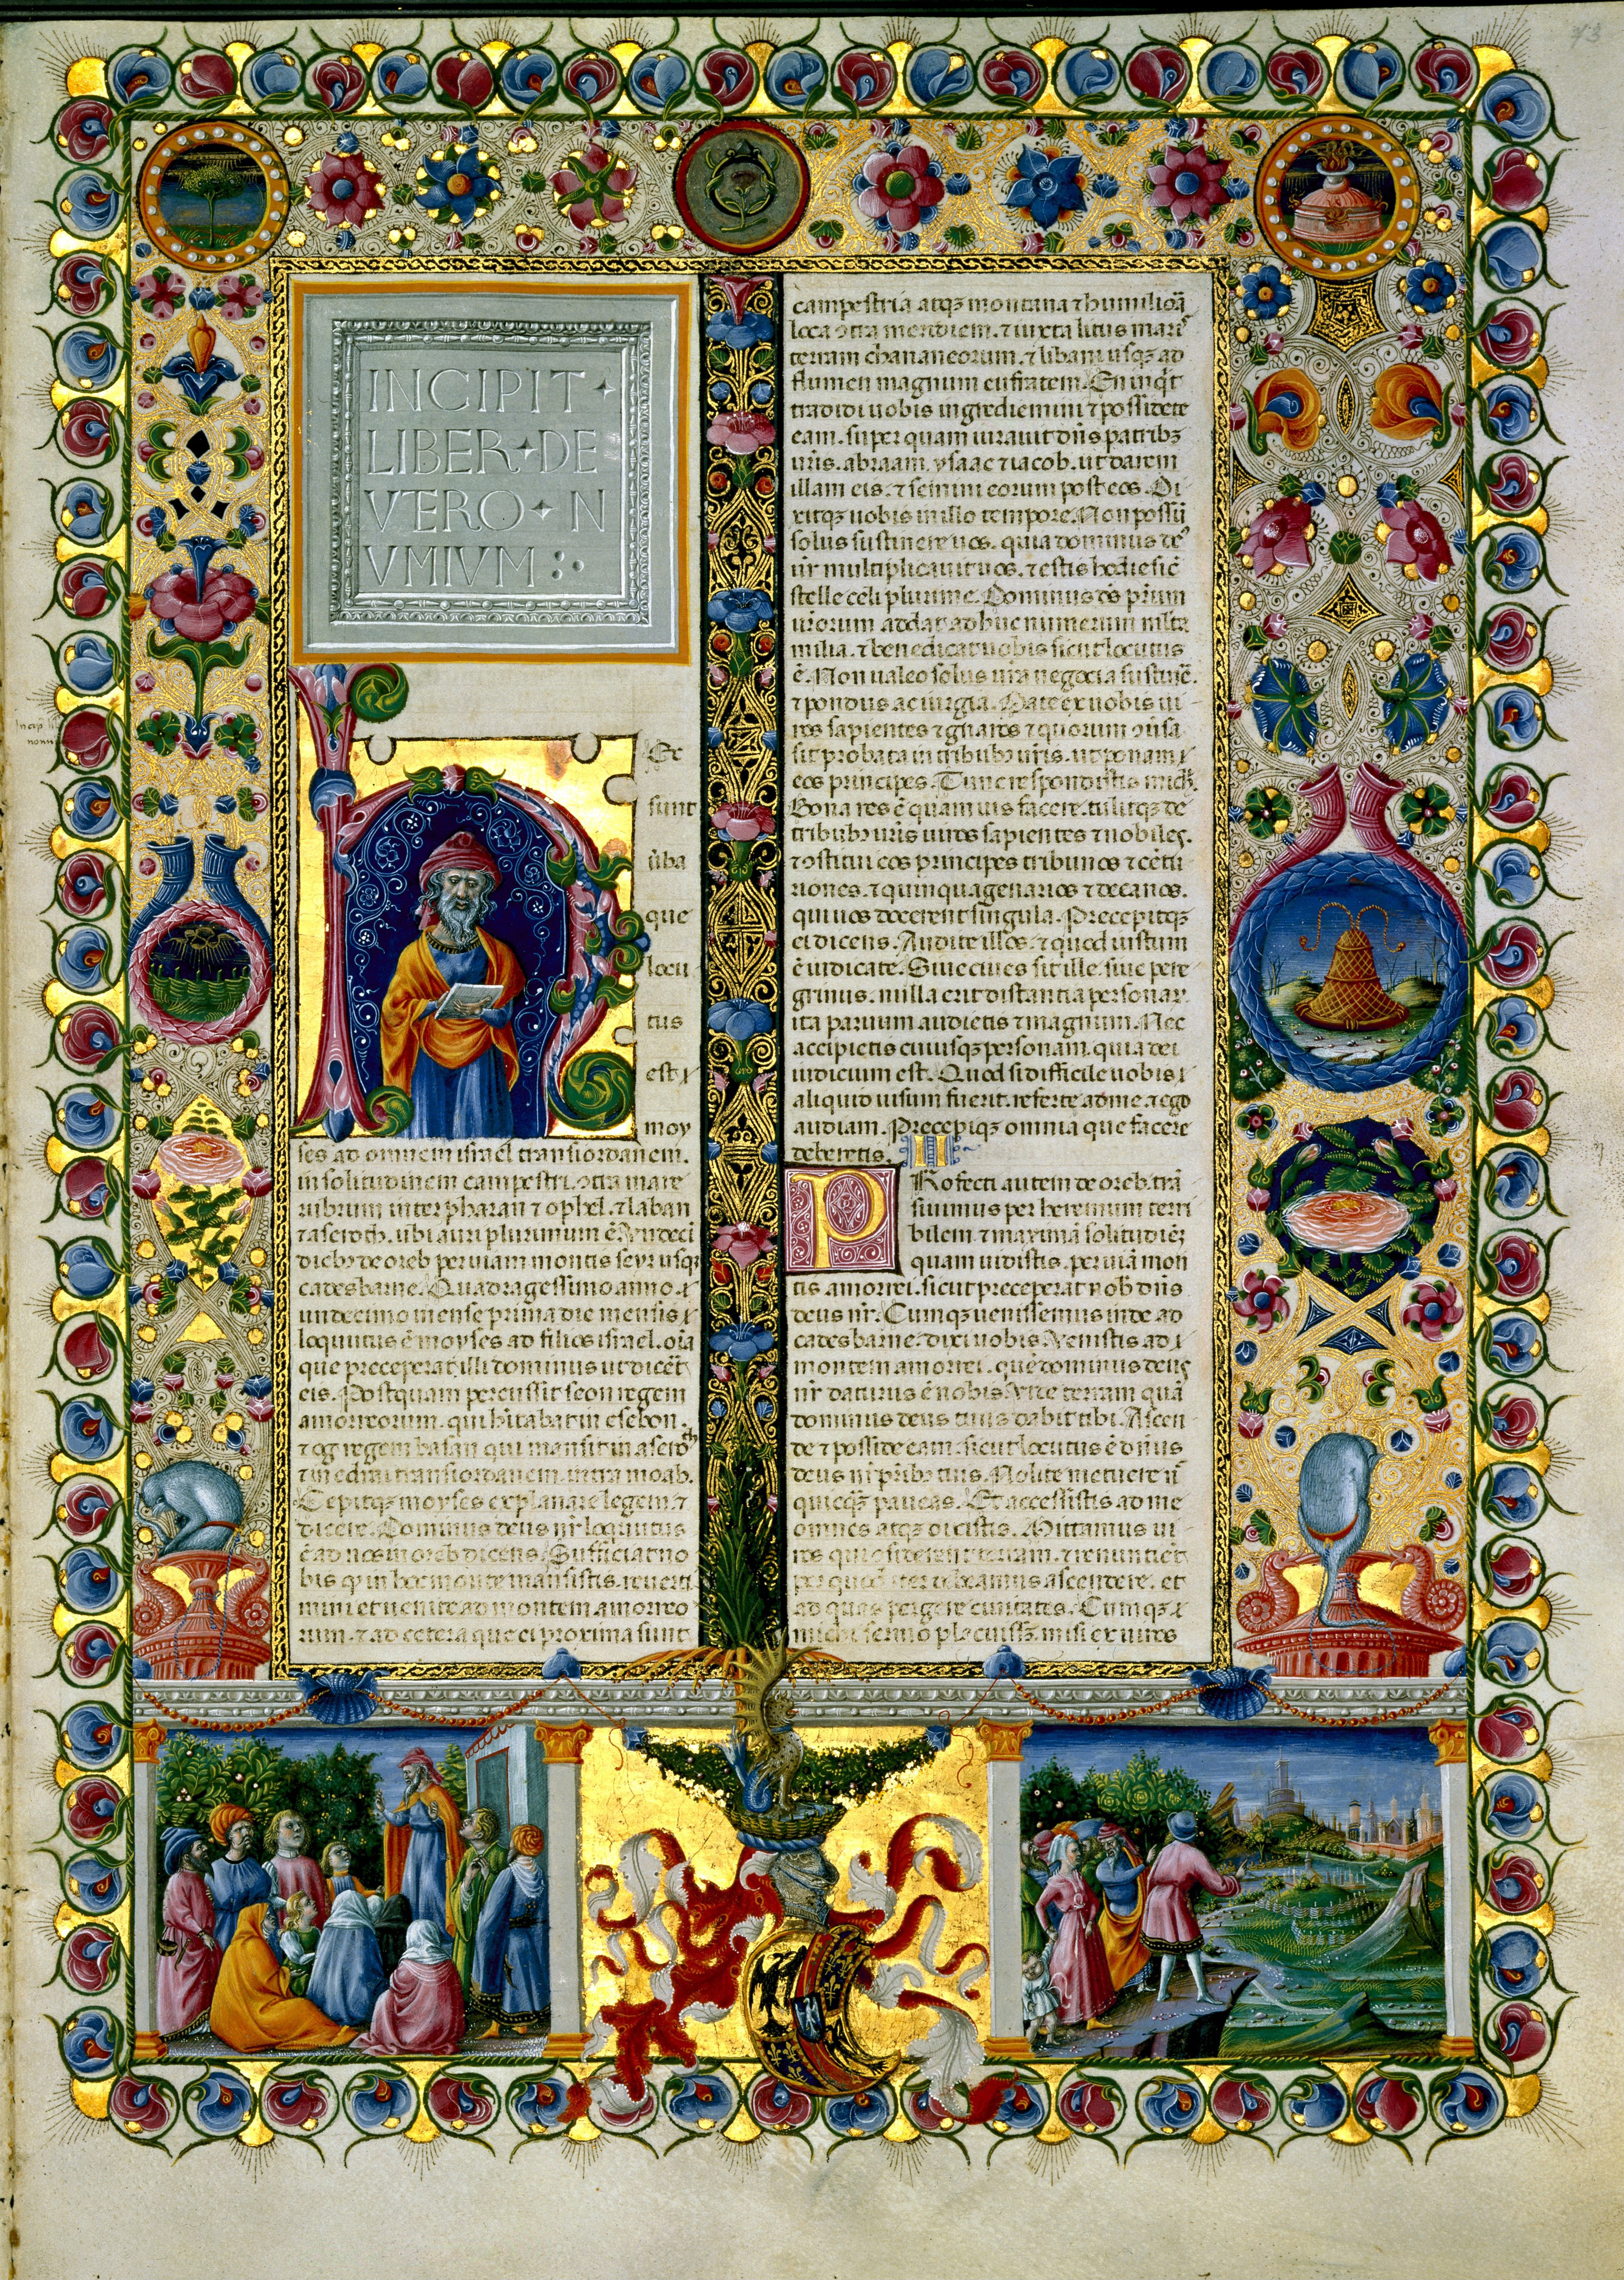 73
INCIPIT
LIBER DE
VTERO N
VMIVM
H Ec
sunt
u̅ba
que
locu
tus
est
moy
ses ad omnem israel transiordanem.
in solitudinem campestri. ɔtra mare
rubrum inter pharan ⁊ ophel. ⁊ laban
⁊ aseroth. ubi auri plurimum ē. Undeci
dieb; de oreb per viam montis seyr usq;
cadesbarne. Quadragessimo anno
undecimo mense prima die mensis
loquutus ē moyses ad filios israel. oīa
que preceperat illi dominus ut dicēt
eis. Postquam percussit seon regem
amorreorum. qui hītabat in esebon.
⁊ og regem basan qui mansit in aseroth
⁊ in edrai transiordanem. in tra moab.
Cepitq; moyses explanare legem. ⁊
dicere. Dominus deus nr̄ loquutus
ē ad nos in oreb dicens. Sufficiat no
bis q̄ in hoc monte mansistis. reverti
mini et venite ad montem amorreo
rum. ⁊ ad cetera que ei proxima sunt
campestria atq; montana ⁊ humiliora
loca ɔtra meridiem. ⁊ iuxta litus maris
terram chananeorum. ⁊ libani usq; ad
flumen magnum eufratem. En inq̄t
tradidi uobis ingrediemini ⁊ possidete
eam. super quam iuravit dn̄s patrib;
uris. abraam. ysaac ⁊ iacob. ut darem
illam eis. ⁊ semini eorum post eos. Di
xitq; uobis in illo tempore. Non possū
solus sustinere uos. quia dominus de⁹
ur̄ multiplicauit uos. ⁊ estis hodie sic̄
stelle celi plurime. Dominus ds̄ pr̄um
ur̄orum addat ad huc numerum mĺta
milia. ⁊ benedicat uobis sicut locutus
ē. Non ualeo solus ur̄a negocia sustinē.
⁊ pondus ac iurgia. Date ex uobis ui
ros sapientes ⁊ gnaros ⁊ quorum ɔūsa
sit probata in tribub; ur̄is. ut ponam
eos principes. Tunc respondistis mich.
Bona res ē quam uis facere. tulitq; de
tribub; ur̄is uiros sapientes ⁊ nobiles.
⁊ ɔstitui eos principes tribunos ⁊ cētu
riones. ⁊ quinquagenarios ⁊ decanos.
qui uos docerent singula. Precepitq;
ei dicens. Audite illos. ⁊ quod iustum
ē iudicate. Siue ciues sit ille. siue pere
grinus. nulla erit distantia personar.
ita paruum audietis ⁊ magnum. Nec
accipietis cuiusq; personam. quia dei
iudicium est. Quod si difficile uobis
aliquid uisum fuerit. referte ad me ⁊ ego
audiam. Precepiq; omnia que facere
deberetis. II
PRofecti autem de oreb. trā
siuimus per heremum terri
bilem. ⁊ maximā solitudinē
quam uidistis. per uiā mon
tis amorrei. sicut preceperat nob dn̄s
deus nr̄. Cumq; uenissemus inde ad
cadesbarne. dixi uobis. Uenistis ad
montem amorrei. quē dominus deus
nr̄ daturus ē nobis. Uide terram quā
dominus deus tuus dabit tibi. Ascen
de ⁊ posside eam. sicut locutus ē dn̄us
deus nr̄ pr̄ib; tuis. Nolite metuere n̄
quicq; paueas. Et accessistis ad me
omnes atq; dixistis. Mittamus ui
ros qui ɔsiderent terram. ⁊ renuntiēt
per quod iter debeamus ascendere. et
ad quas pergere ciuitates. Cumq;
michi sermo placuisset. misi ex uiros